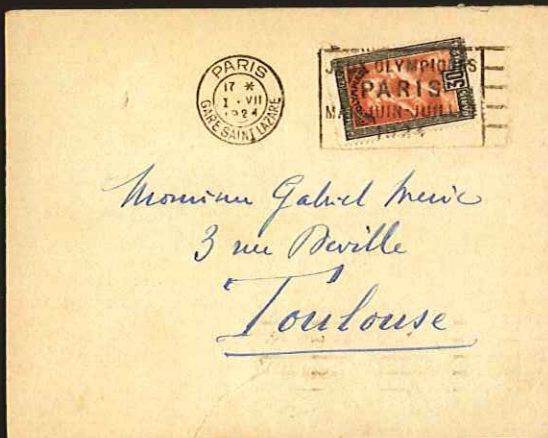 PARIS
17 *
1 · VII
1924
GARE SAINT LAZARE
JEUX OLYMPIQUES
PARIS
MAI-JUIN-JUILLET
1924
50
Monsieur Gabriel
3 rue Deville
Toulouse